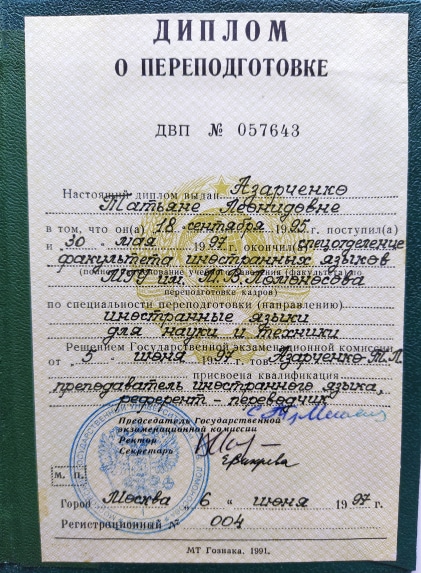 ДИПЛОМ
О ПЕРЕПОДГОТОВКЕ
ДВП № 057643
Настоящий диплом выдан Азарченко
Татьяне Леонидовне
в том, что он(а) 18 сентября 1995 г. поступил(а)
и "30" мая 1997 г. окончил(а) спецотделение
факультета иностранных языков
МГУ им. М.В.Ломоносова
переподготовки кадров)
по специальности переподготовки (направлению)
иностранные языки
для науки и техники
Решением Государственной экзаменационной комиссии
от "5" июня 1997 г. тов. Азарченко Т.Л.
присвоена квалификация
преподаватель иностранного языка,
референт-переводчик
Председатель Государственной
экзаменационной комиссии
Ректор
Секретарь
М. П.
Город Москва "6" июня 1997 г.
Регистрационный № 004
МТ Гознака. 1991.